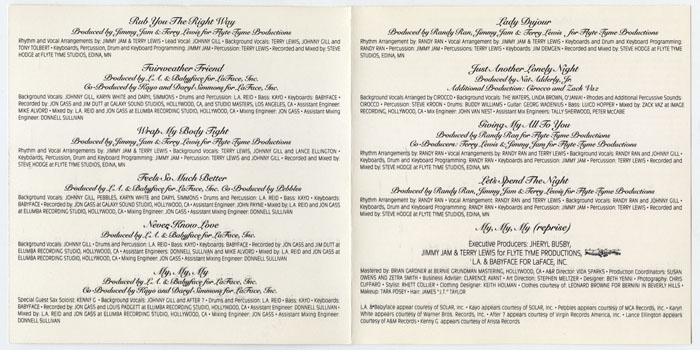 Rub You The Right Way
Produced by Jimmy Jam & Terry Lewis for Flyte Tyme Productions
Rhythm and Vocal Arrangements by: JIMMY JAM & TERRY LEWIS • Lead Vocal: JOHNNY GILL • Background Vocals: TERRY LEWIS, JOHNNY GILL and
TONY TOLBERT • Keyboards, Percussion, Drum and Keyboard Programming: JIMMY JAM • Percussion: TERRY LEWIS • Recorded and Mixed by: STEVE
HODGE at FLYTE TYME STUDIOS, EDINA, MN
Fairweather Friend
Produced by L.A. & Babyface for LaFace, Inc.
Co-Produced by Kayo and Daryl Simmons for LaFace, Inc.
Background Vocals: JOHNNY GILL, KARYN WHITE and DARYL SIMMONS • Drums and Percussion: L.A. REID • Bass: KAYO • Keyboards: BABYFACE •
Recorded by: JON GASS and JIM DUTT at GALAXY SOUND STUDIOS, HOLLYWOOD, CA, and STUDIO MASTERS, LOS ANGELES, CA • Assistant Engineer:
MIKE ALVORD • Mixed by: L.A. REID and JON GASS at ELUMBA RECORDING STUDIO, HOLLYWOOD, CA • Mixing Engineer: JON GASS • Assistant
Engineer: DONNELL SULLIVAN
Wrap My Body Tight
Produced by Jimmy Jam & Terry Lewis for Flyte Tyme Productions
Rhythm and Vocal Arrangements by: JIMMY JAM & TERRY LEWIS • Background Vocals: TERRY LEWIS, JOHNNY GILL and LANCE ELLINGTON •
Keyboards, Percussion, Drum and Keyboard Programming: JIMMY JAM • Percussion: TERRY LEWIS and JOHNNY GILL • Recorded and Mixed by:
STEVE HODGE at FLYTE TYME STUDIOS, EDINA, MN
Feels So Much Better
Produced by L.A. & Babyface for LaFace, Inc. Co-Produced by Pebbles
Background Vocals: JOHNNY GILL, PEBBLES, KARYN WHITE and DARYL SIMMONS • Drums and Percussion: L.A. REID • Bass: KAYO • Keyboards:
BABYFACE • Recorded by: JON GASS at GALAXY SOUND STUDIO, HOLLYWOOD, CA • Assistant Engineer: JOHN PAYNE • Mixed by: L.A. REID and JON GASS at
ELUMBA RECORDING STUDIO, HOLLYWOOD, CA • Mixing Engineer: JON GASS • Assistant Engineer: DONNELL SULLIVAN
Never Know Love
Produced by L.A. & Babyface for LaFace, Inc.
Background Vocals: JOHNNY GILL • Drums and Percussion: L.A. REID • Bass: KAYO • Keyboards: BABYFACE • Recorded by: JON GASS and JIM DUTT at
ELUMBA RECORDING STUDIO, HOLLYWOOD, CA • Assistant Engineers: DONNELL SULLIVAN and MIKE ALVORD • Mixed by: L.A. REID and JON GASS at
ELUMBA RECORDING STUDIO, HOLLYWOOD, CA • Mixing Engineer: JON GASS • Assistant Mixing Engineer: DONNELL SULLIVAN
My, My, My
Produced by L.A. & Babyface for LaFace, Inc.
Co-Produced by Kayo and Daryl Simmons for LaFace, Inc.
Special Guest Sax Soloist: KENNY G. • Background Vocals: JOHNNY GILL and AFTER 7 • Drums and Percussion: L.A. REID • Bass: KAYO • Keyboards:
BABYFACE • Recorded by: JON GASS and LOUIS PADGETT at ELUMBA RECORDING STUDIO, HOLLYWOOD, CA • Assistant Engineer: DONNELL SULLIVAN •
Mixed by: L.A. REID and JON GASS at ELUMBA RECORDING STUDIO, HOLLYWOOD, CA • Mixing Engineer: JON GASS • Assistant Mixing Engineer:
DONNELL SULLIVAN
Lady Dujour
Produced by Randy Ran, Jimmy Jam & Terry Lewis for Flyte Tyme Productions
Rhythm Arrangement by: RANDY RAN • Vocal Arrangement by: JIMMY JAM & TERRY LEWIS • Keyboards, Drum and Keyboard Programming:
RANDY RAN • Percussion: JIMMY JAM, TERRY LEWIS • Percussion: TERRY LEWIS • Keyboards: JIM DEMGEN • Recorded and Mixed by: STEVE HODGE at FLYTE TYME
STUDIOS, EDINA, MN
Just Another Lonely Night
Produced by Nat Adderly, Jr.
Additional Production: Cirocco and Zack Vaz
Background Vocals Arranged by CIROCCO • Background Vocals: THE WATERS, BRIAN O'JINAH • Rhodes and Additional Percussive Sounds:
CIROCCO • Percussion: STEVE KROON • Drums: BUDDY WILLIAMS • Guitar: GEORG WADENIUS • Bass: LUICO HOPPER • Mixed by: ZACK VAZ at IMAGE
RECORDING, HOLLYWOOD, CA • Mix Engineer: JOHN VAN NEST • Assistant Mix Engineers: TALLY SHERWOOD, PETER McCABE
Giving My All To You
Produced by Randy Ran for Flyte Tyme Productions
Co-Producers: Terry Lewis & Jimmy Jam for Flyte Tyme Productions
Rhythm Arrangement by: RANDY RAN • Vocal Arrangement by: RANDY RAN and TERRY LEWIS • Background Vocals: RANDY RAN and JOHNNY GILL •
Keyboards, Drum and Keyboard Programming: RANDY RAN • Percussion: JIMMY JAM • Percussion: TERRY LEWIS • Recorded and Mixed by:
STEVE HODGE at FLYTE TYME STUDIOS, EDINA, MN
Let's Spend The Night
Produced by Randy Ran, Jimmy Jam & Terry Lewis for Flyte Tyme Productions
Rhythm Arrangement by: RANDY RAN • Vocal Arrangement by: RANDY RAN and TERRY LEWIS • Background Vocals: RANDY RAN and JOHNNY GILL •
Keyboards, Drum and Keyboard Programming: RANDY RAN • Keyboards and Percussion: JIMMY JAM • Percussion: TERRY LEWIS • Recorded and
Mixed by: STEVE HODGE at FLYTE TYME STUDIOS, EDINA, MN
My, My, My (reprise)
Executive Producers: JHERYL BUSBY,
JIMMY JAM & TERRY LEWIS for FLYTE TYME PRODUCTIONS,
L.A. & BABYFACE FOR LaFACE, INC.
Mastered by: BRIAN GARDNER at BERNIE GRUNDMAN MASTERING, HOLLYWOOD, CA • A&R Director: VIDA SPARKS • Production Coordinators: SUSAN
OWENS AND ZETRA SMITH • Business Advisor: CLARENCE AVANT • Art Direction: STEPHEN MELTZER • Designer: BETH YENNI • Photography: CHRIS
CUFFARO • Stylist: RHETT COLLIER • Clothing Designer: KEITH HOLMAN • Clothes courtesy of: LEONARD BROWNE FOR BERNINI IN BEVERLY HILLS •
Makeup: TARA POSEY • Hair: JAMES "J.T." TAYLOR
L.A. & Babyface appear courtesy of SOLAR, Inc. • Kayo appears courtesy of SOLAR, Inc. • Pebbles appears courtesy of MCA Records, Inc. • Karyn
White appears courtesy of Warner Bros. Records, Inc. • After 7 appears courtesy of Virgin Records America, Inc. • Lance Ellington appears
courtesy of A&M Records • Kenny G. appears courtesy of Arista Records